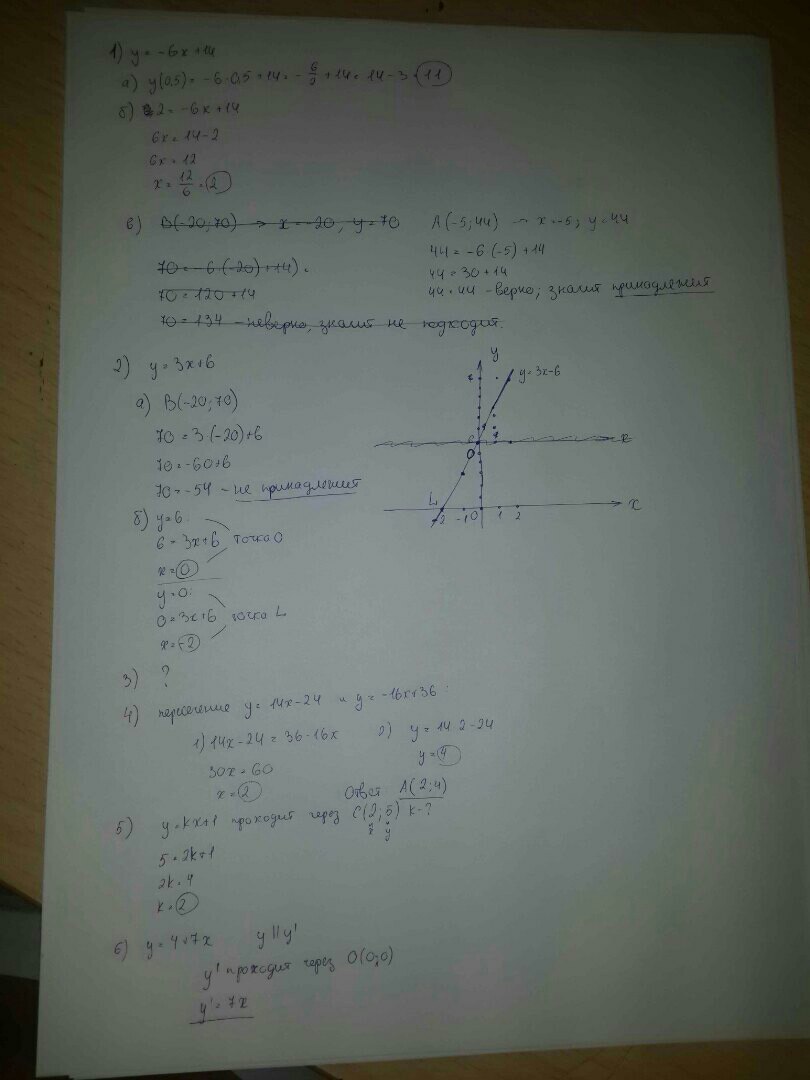 1) y = -6x+14
а) y(0,5) = -6·0,5+14 = -6/2 +14 = 14-3 = 11
б) 2 = -6x+14
6x = 14-2
6x = 12
x = 12/6 = 2
в) B(-20;70) → x = -20, y = 70
70 = -6(-20)+14
70 = 120+14
70 = 134 - неверно, значит не подходит.
A(-5;44) → x = -5; y = 44
44 = -6(-5)+14
44 = 30+14
44 = 44 - верно; значит принадлежит
2) y = 3x+6
а) B(-20;70)
70 = 3(-20)+6
70 = -60+6
70 = -54 - не принадлежит
б) y = 6:
6 = 3x+6 точка O
x = 0
y = 0:
0 = 3x+6 точка L
x = -2
y
y = 3x-6
x
6
O
L
-2 -1 0 1 2
x
3) ?
4) пересечение y = 14x-24 и y = -16x+36:
1) 14x-24 = 36-16x
30x = 60
x = 2
2) y = 14·2-24
y = 4
Ответ A(2;4)
5) y = kx+1 проходит через C(2;5) k-?
x y
5 = 2k+1
2k = 4
k = 2
6) y = 4+7x y || y'
y' проходит через O(0;0)
y' = 7x